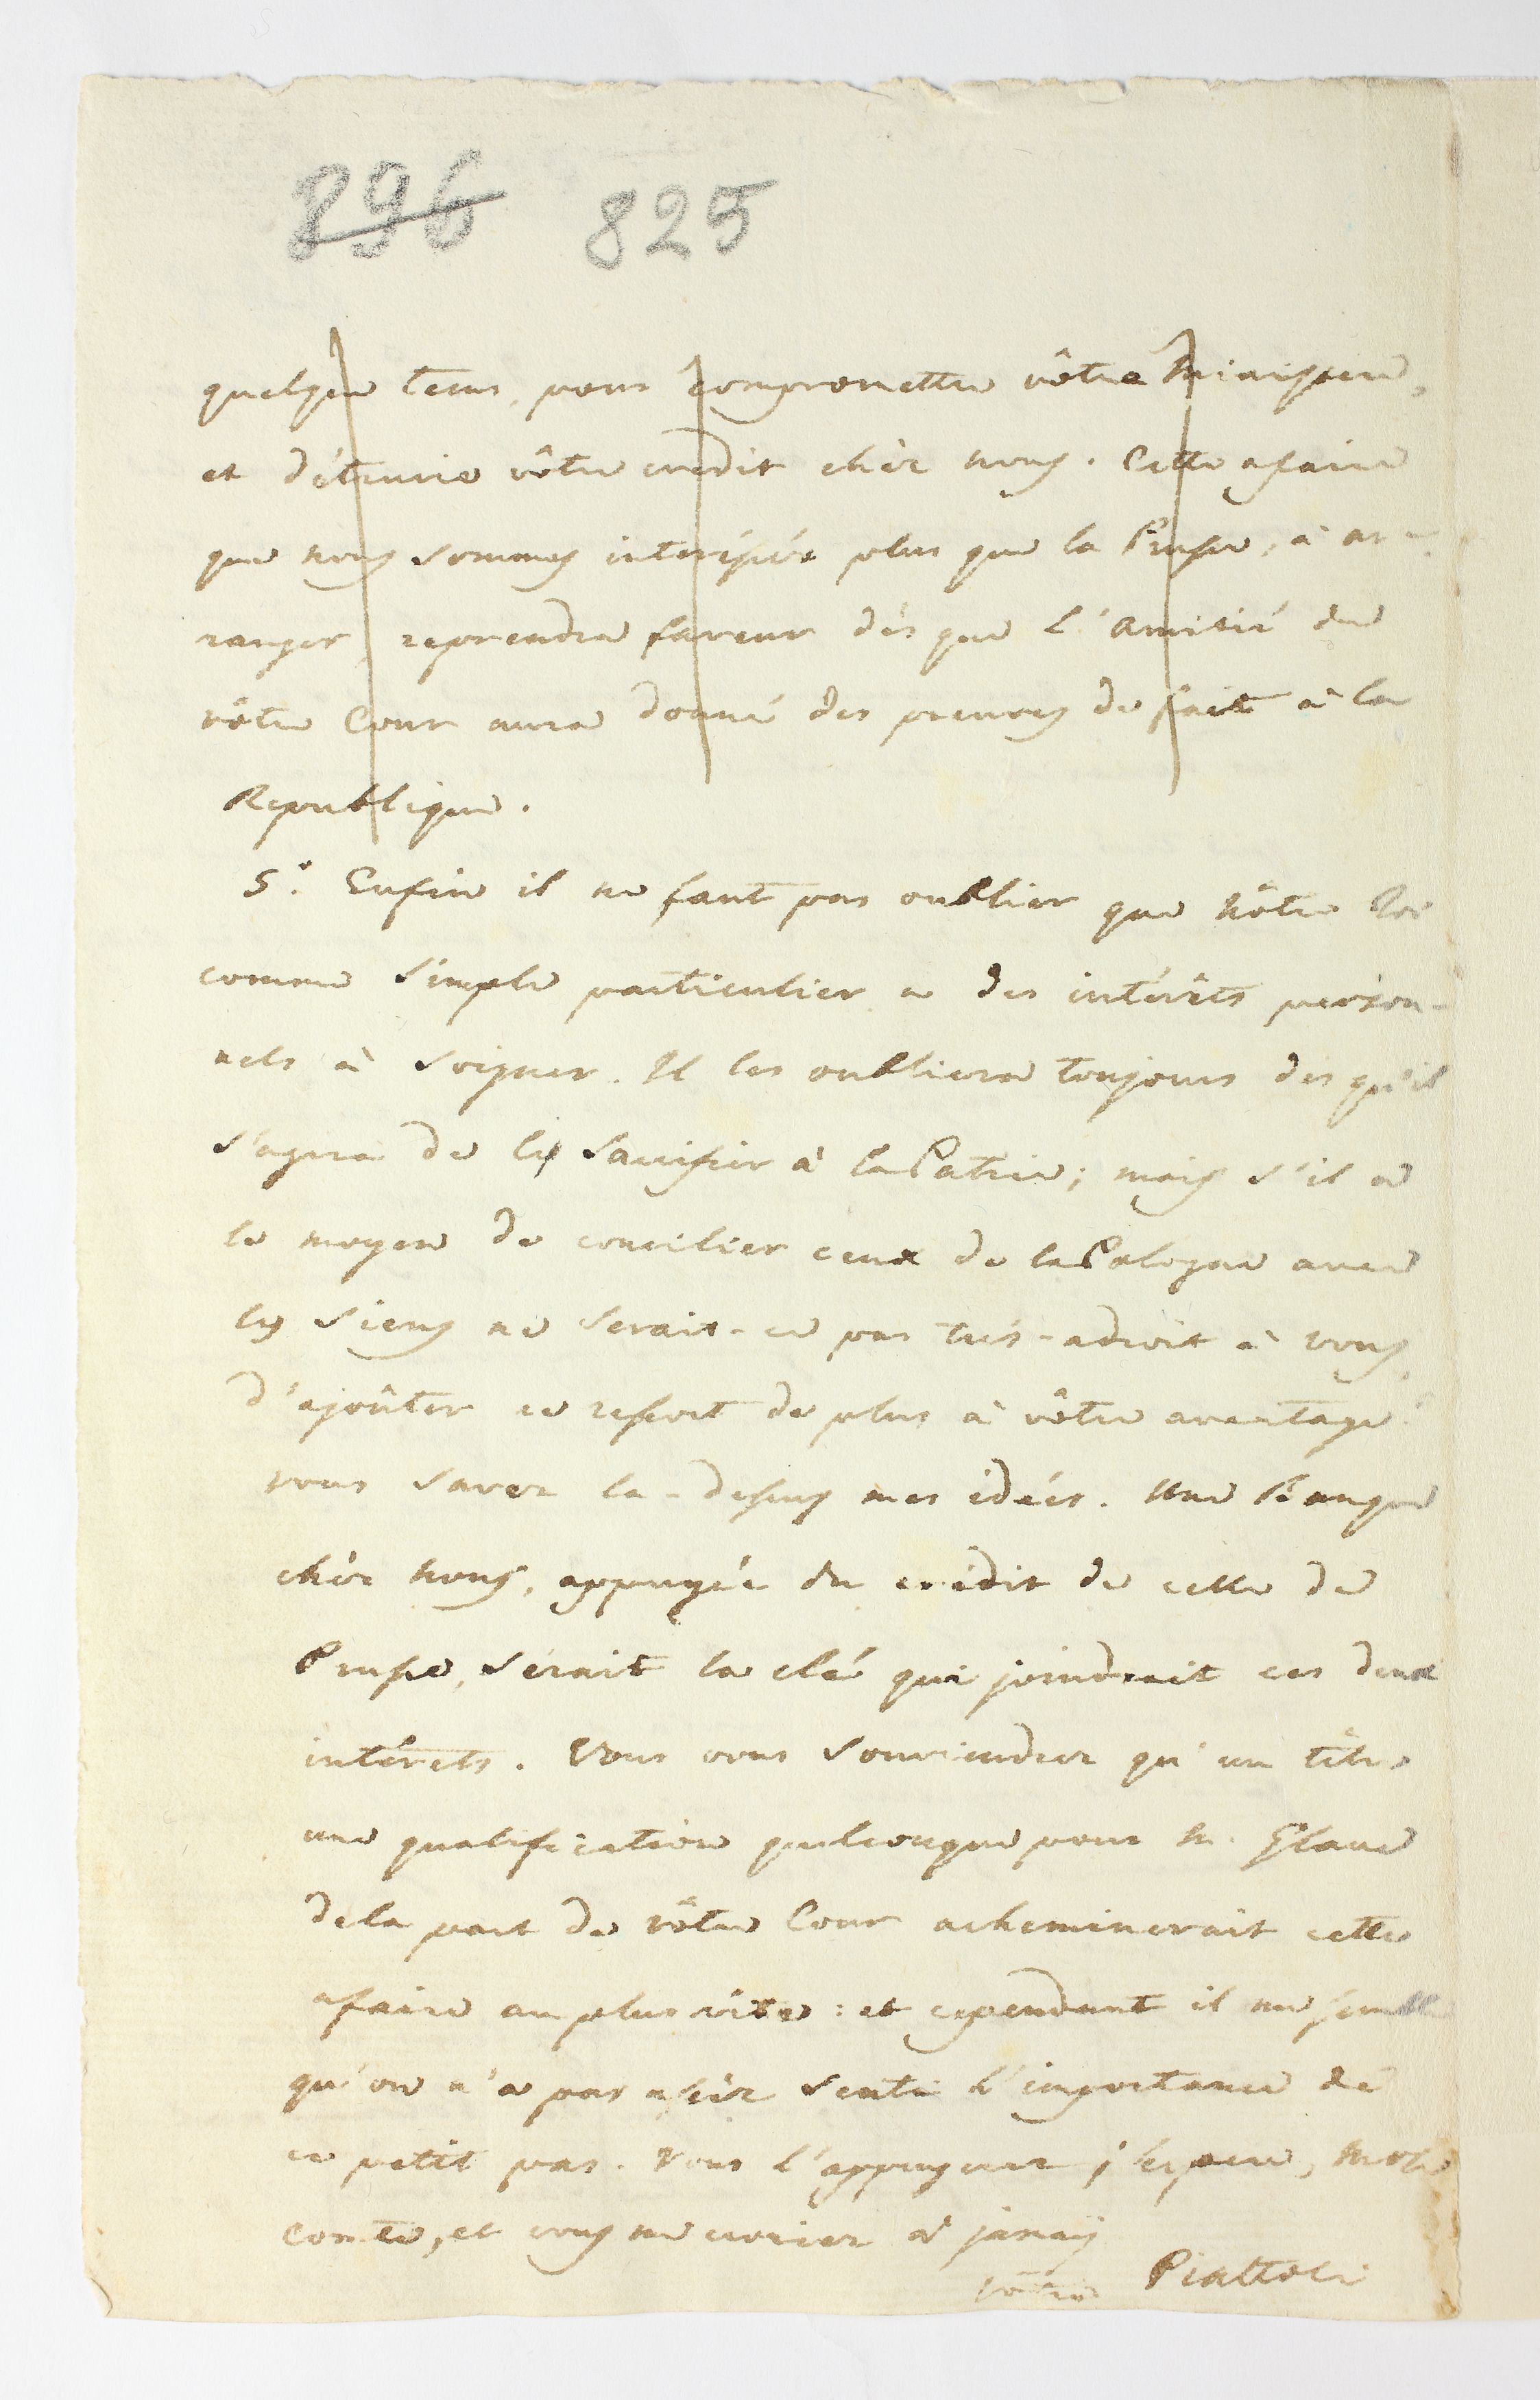 896 825
quelque tems, pour compromettre vôtre
et détruire vôtre credit chèz nous. Cette afaire
que nous sommes interessés plus que la Prusse, à ar-
ranger, reprendra faveur dès que l'amitié de
vôtre Cour aura donné des preuves de fait à la
Republique.
5°. Enfin il ne faut pas oublier que nôtre Roi
comme simple particulier a des intérêts person-
nels à soigner. Il les oubliera toujours des qu'il
s'agira de les sacrifier à la Patrie; mais s'il a
le moyen de concilier ceux de la Pologne avec
les siens ne serait-ce pas très-adroit à vous,
d'ajoûter ce ressort de plus à vôtre avantage?
vous savez la-dessus mes idées. Une Banque
chèz nous, appuyée du crédit de celle de
Prusse, serait la clé qui joindrait ces deux
intérets. Vous vous souviendrez qu'un titre
une qualification quelconque pour M. Glave
dela part de vôtre Cour acheminerait cette
afaire au plus vite: et cependant il me semble
qu'on n'a pas assèz senti l'importance de
ce petit pas. Vous l'appuyerez j'espere, mon
Comte, et vous me croirez à jamais
vôtre Piattoli